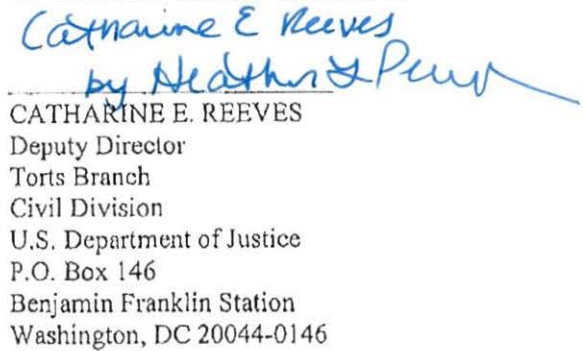 Catharine E Reeves
by Heather L
CATHARINE E. REEVES
Deputy Director
Torts Branch
Civil Division
U.S. Department of Justice
P.O. Box 146
Benjamin Franklin Station
Washington, DC 20044-0146